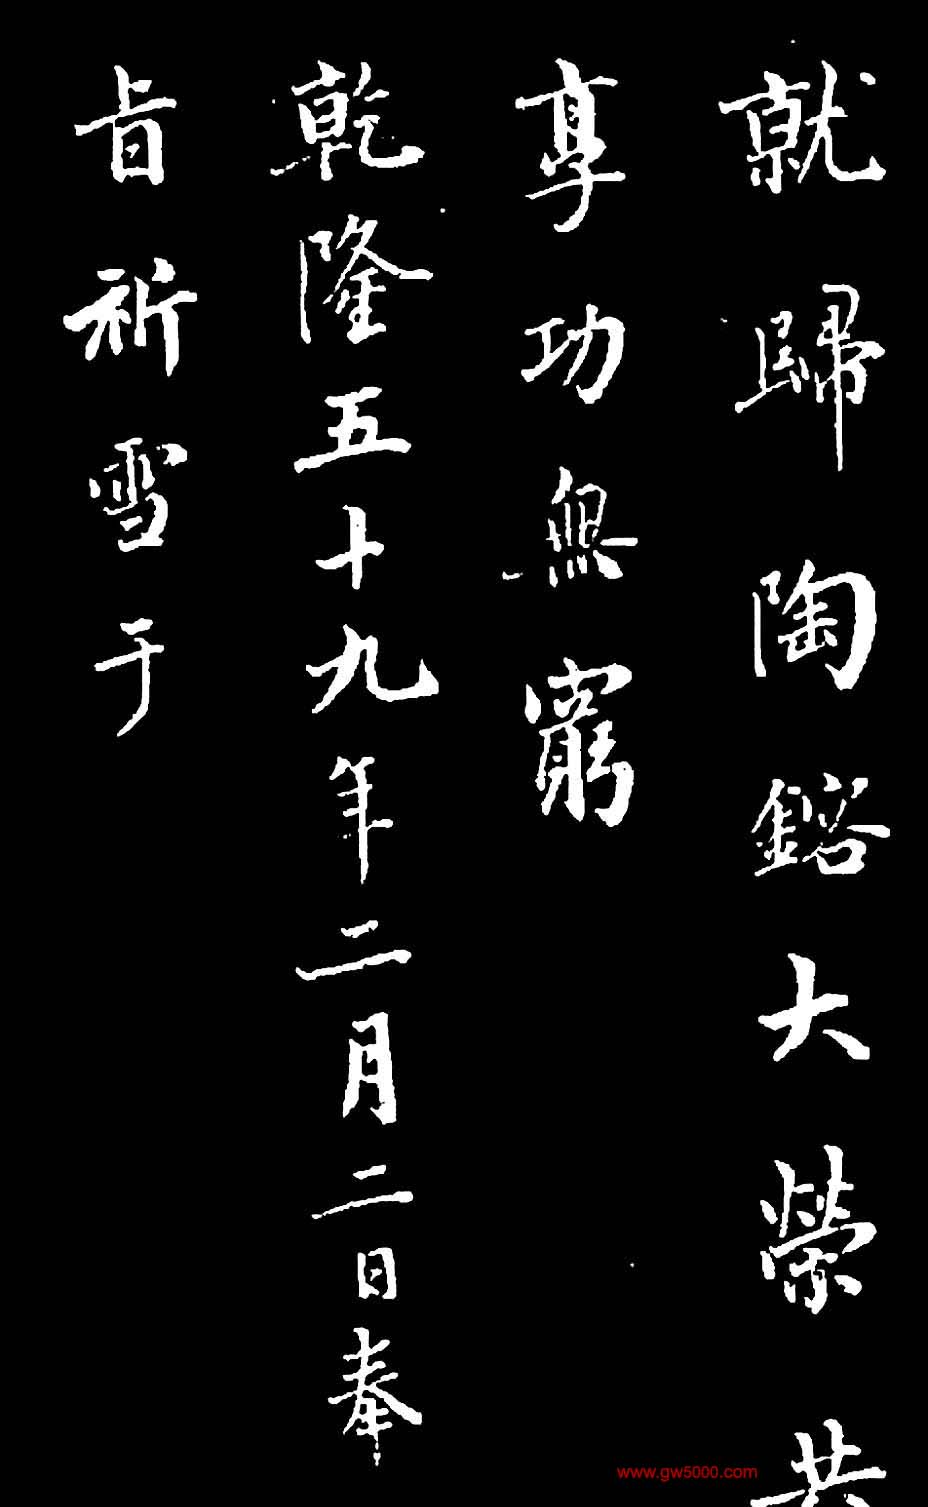 就歸陶鎔大榮共
享功無窮
乾隆五十九年二月二日奉
旨祈雪于
www.gw5000.com